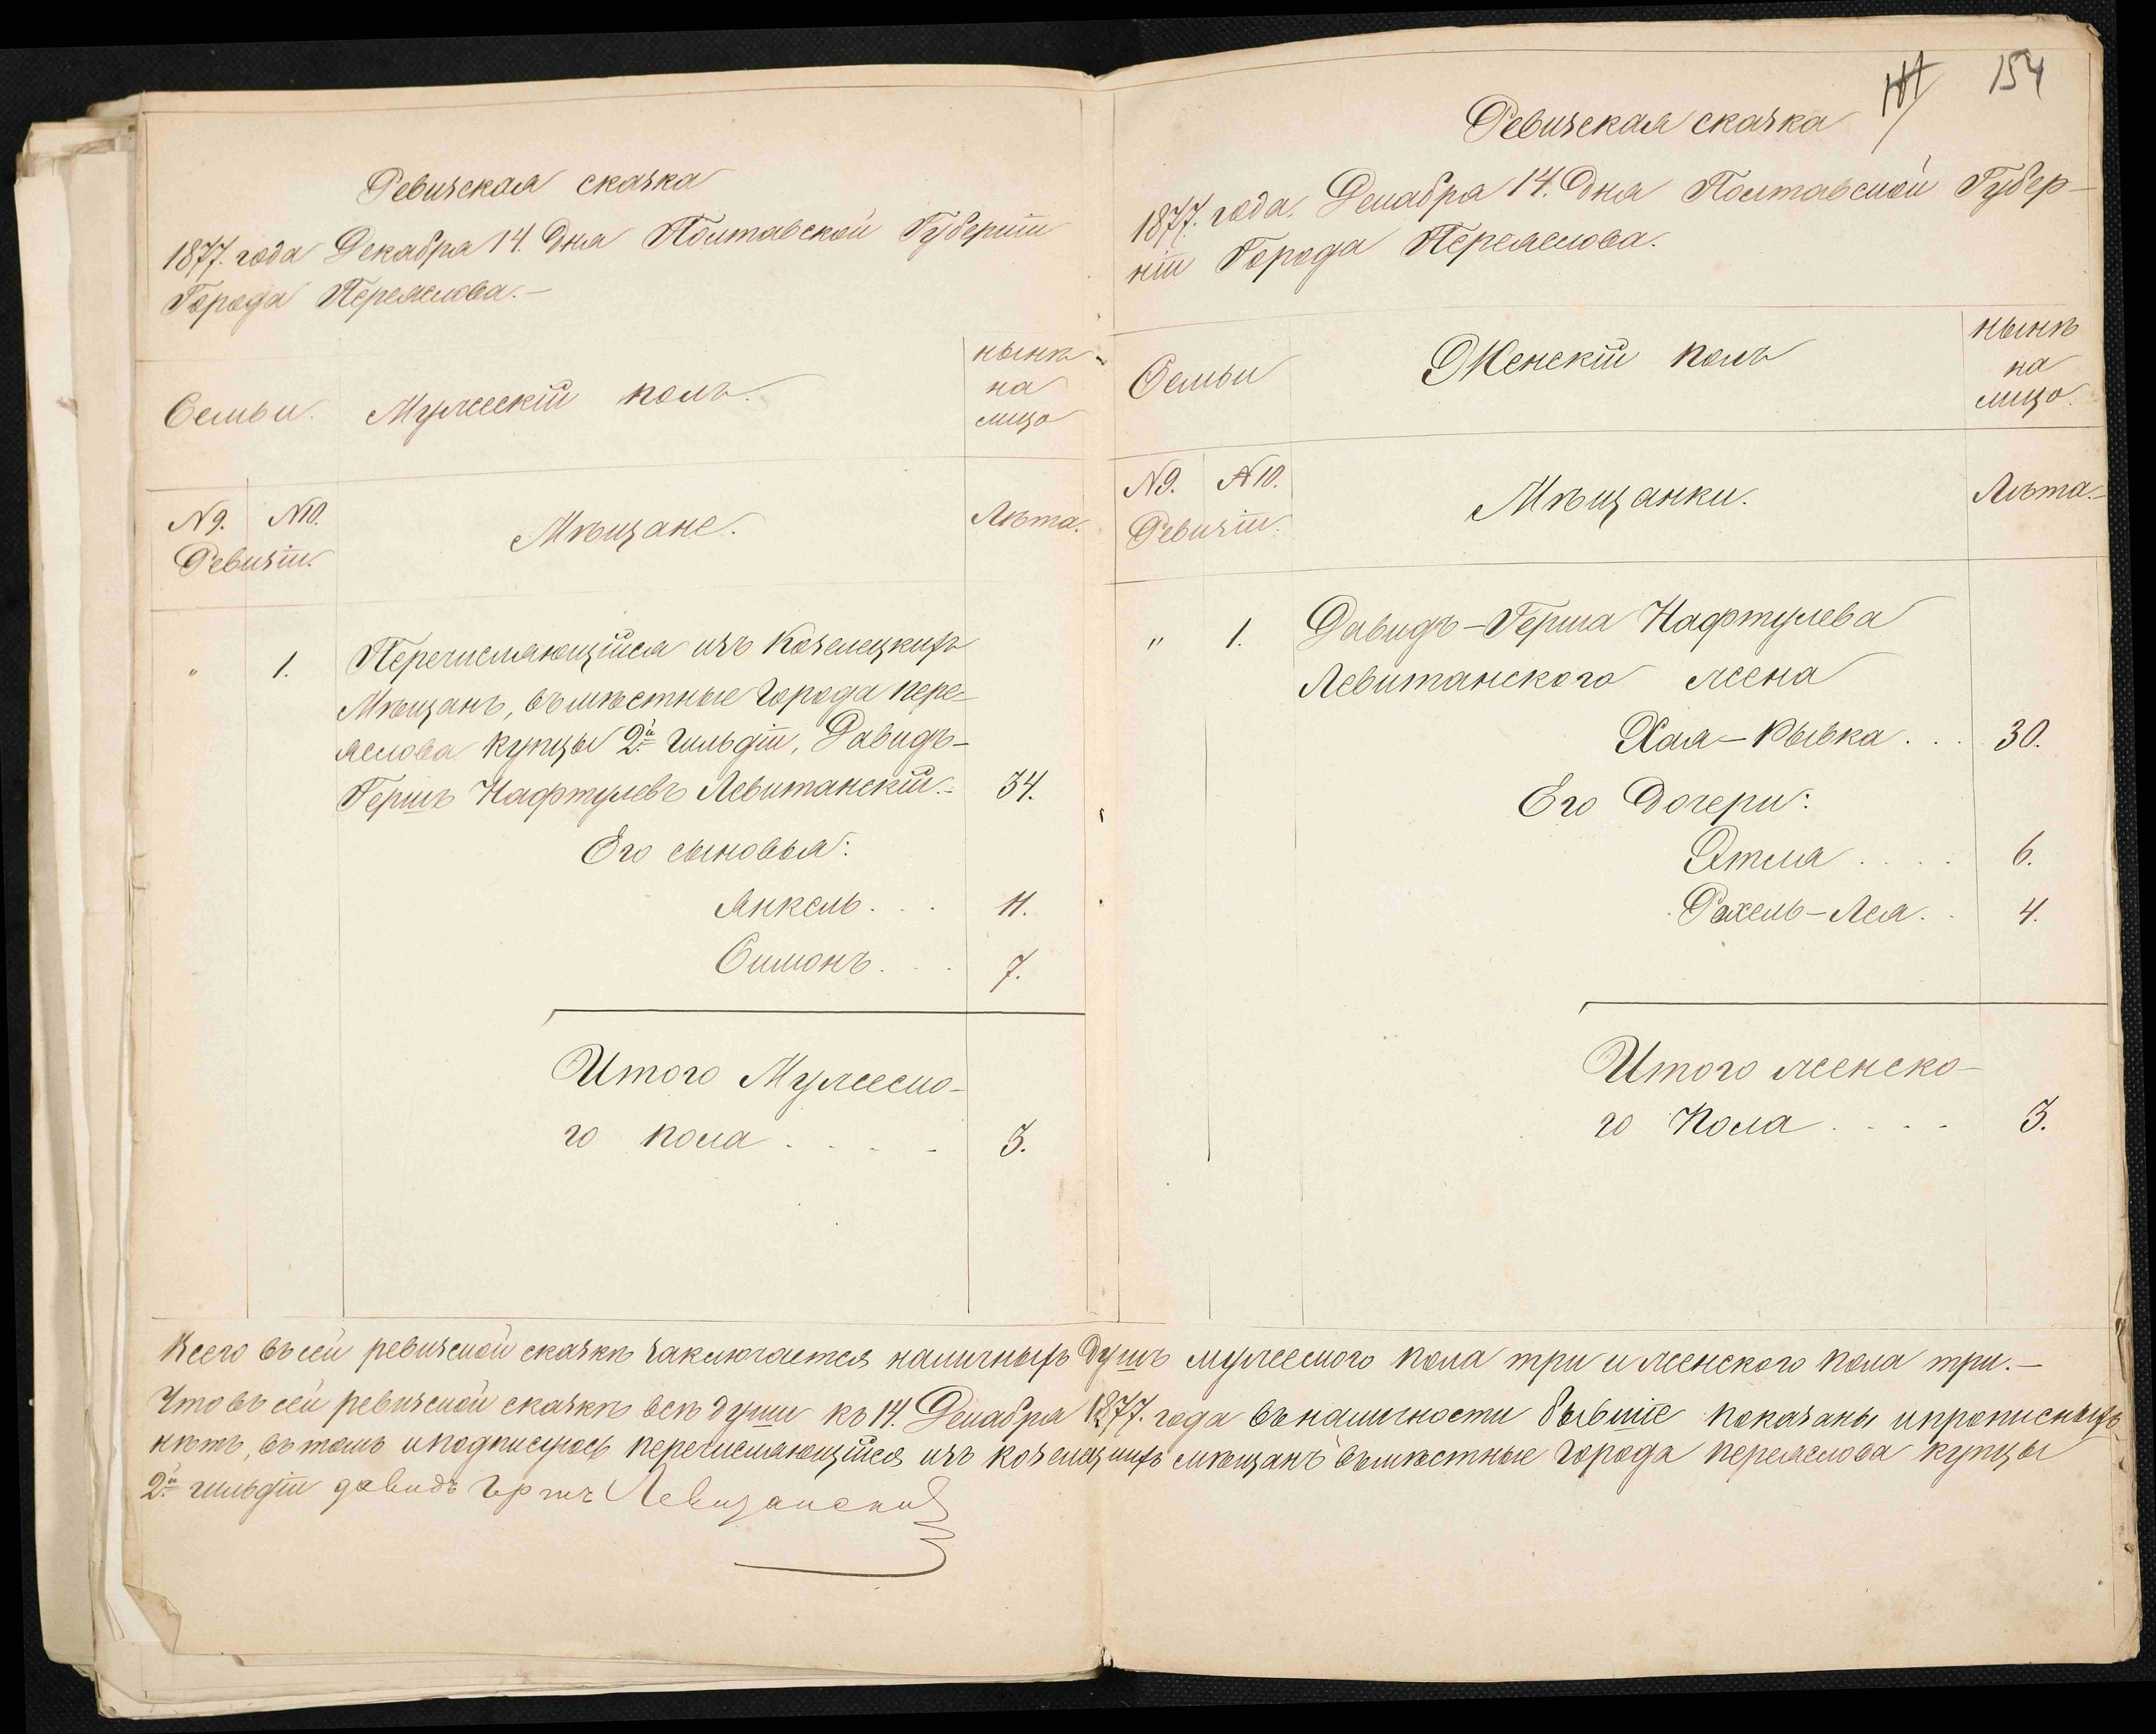 Ревизская сказка
1877. года Декабря 14. дня Полтавской Губерніи
Города Переяслова.—
Семьи. Мужескій полъ. нынѣ
на
лицо
№ 9. № 10. Мѣщане. Лѣта.
Ревизіи.
" 1. Перечисляющійся изъ Козелецкихъ
Мѣщанъ, въ мѣстные города Пере-
яслова купцы 2й гильдіи, Давидъ-
Гершъ Нафтулевъ Левитанскій.- 34.
Его сыновья:
Янкель . . . 11.
Симонъ . . . 7.
Итого Мужеско-
го пола . . . . 3.
154
Ревизская сказка
1877. года. Декабря 14. дня Полтавской Губер-
ніи Города Переяслова.
Семьи Женскій полъ нынѣ
на
лицо.
№ 9. № 10. Мѣщанки. Лѣта.-
Ревизіи.
" 1. Давидъ-Герша Нафтулева
Левитанского жена
Хая-Рывка . . . 30.
Его дочери:
Этля . . . . 6.
Рахель-Лея . . 4.
Итого женско-
го пола . . . . 3.
Всего въ сей ревизской сказкѣ заключается наличныхъ душъ мужеского пола три и женского пола три.—
Что въ сей ревизской сказкѣ всѣ души къ 14. Декабря 1877. года въ наличности бывшіе показаны и прописныхъ
нѣтъ, въ томъ и подписуюсь перечисляющійся изъ козелецкихъ мѣщанъ въ мѣстные города переяслова купцы
2й гильдіи давидъ Гершъ Левитанский